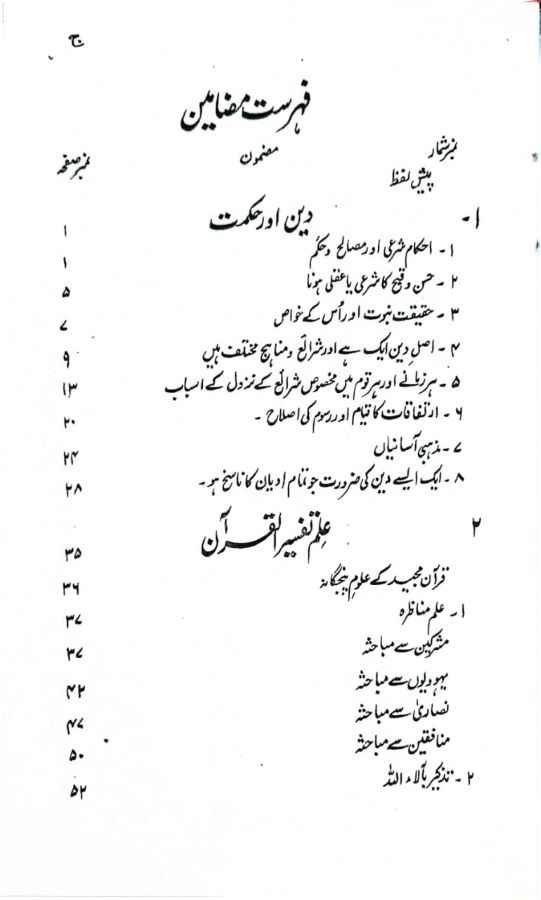 ج
فہرست مضامین
نمبر شمار مضمون نمبر صفحہ
پیش لفظ
۱۔ دین اور حکمت ۱
۱۔ احکام شرعی اور مصالح و حکم ۱
۲۔ حسن و قبیح کا شرعی یا عقلی ہونا ۵
۳۔ حقیقت نبوت اور اُس کے خواص ۷
۴۔ اصل دین ایک ہے اور شرائع و مناہج مختلف ہیں ۹
۵۔ ہر زمانے اور ہر قوم میں مخصوص شرائع کے نزول کے اسباب ۱۳
۶۔ ارتفاقات کا قیام اور رسوم کی اصلاح ۔ ۲۰
۷۔ مذہبی آسانیاں ۲۴
۸۔ ایک ایسے دین کی ضرورت جو تمام ادیان کا ناسخ ہو۔ ۲۸
۲ علم تفسیر القرآن ۳۵
قرآن مجید کے علوم پنجگانہ ۳۶
۱۔ علم مناظرہ ۳۷
مشرکین سے مباحثہ ۳۷
یہودیوں سے مباحثہ ۴۲
نصاریٰ سے مباحثہ ۴۷
منافقین سے مباحثہ ۵۰
۲۔ تذکیر بآلاء اللہ ۵۲